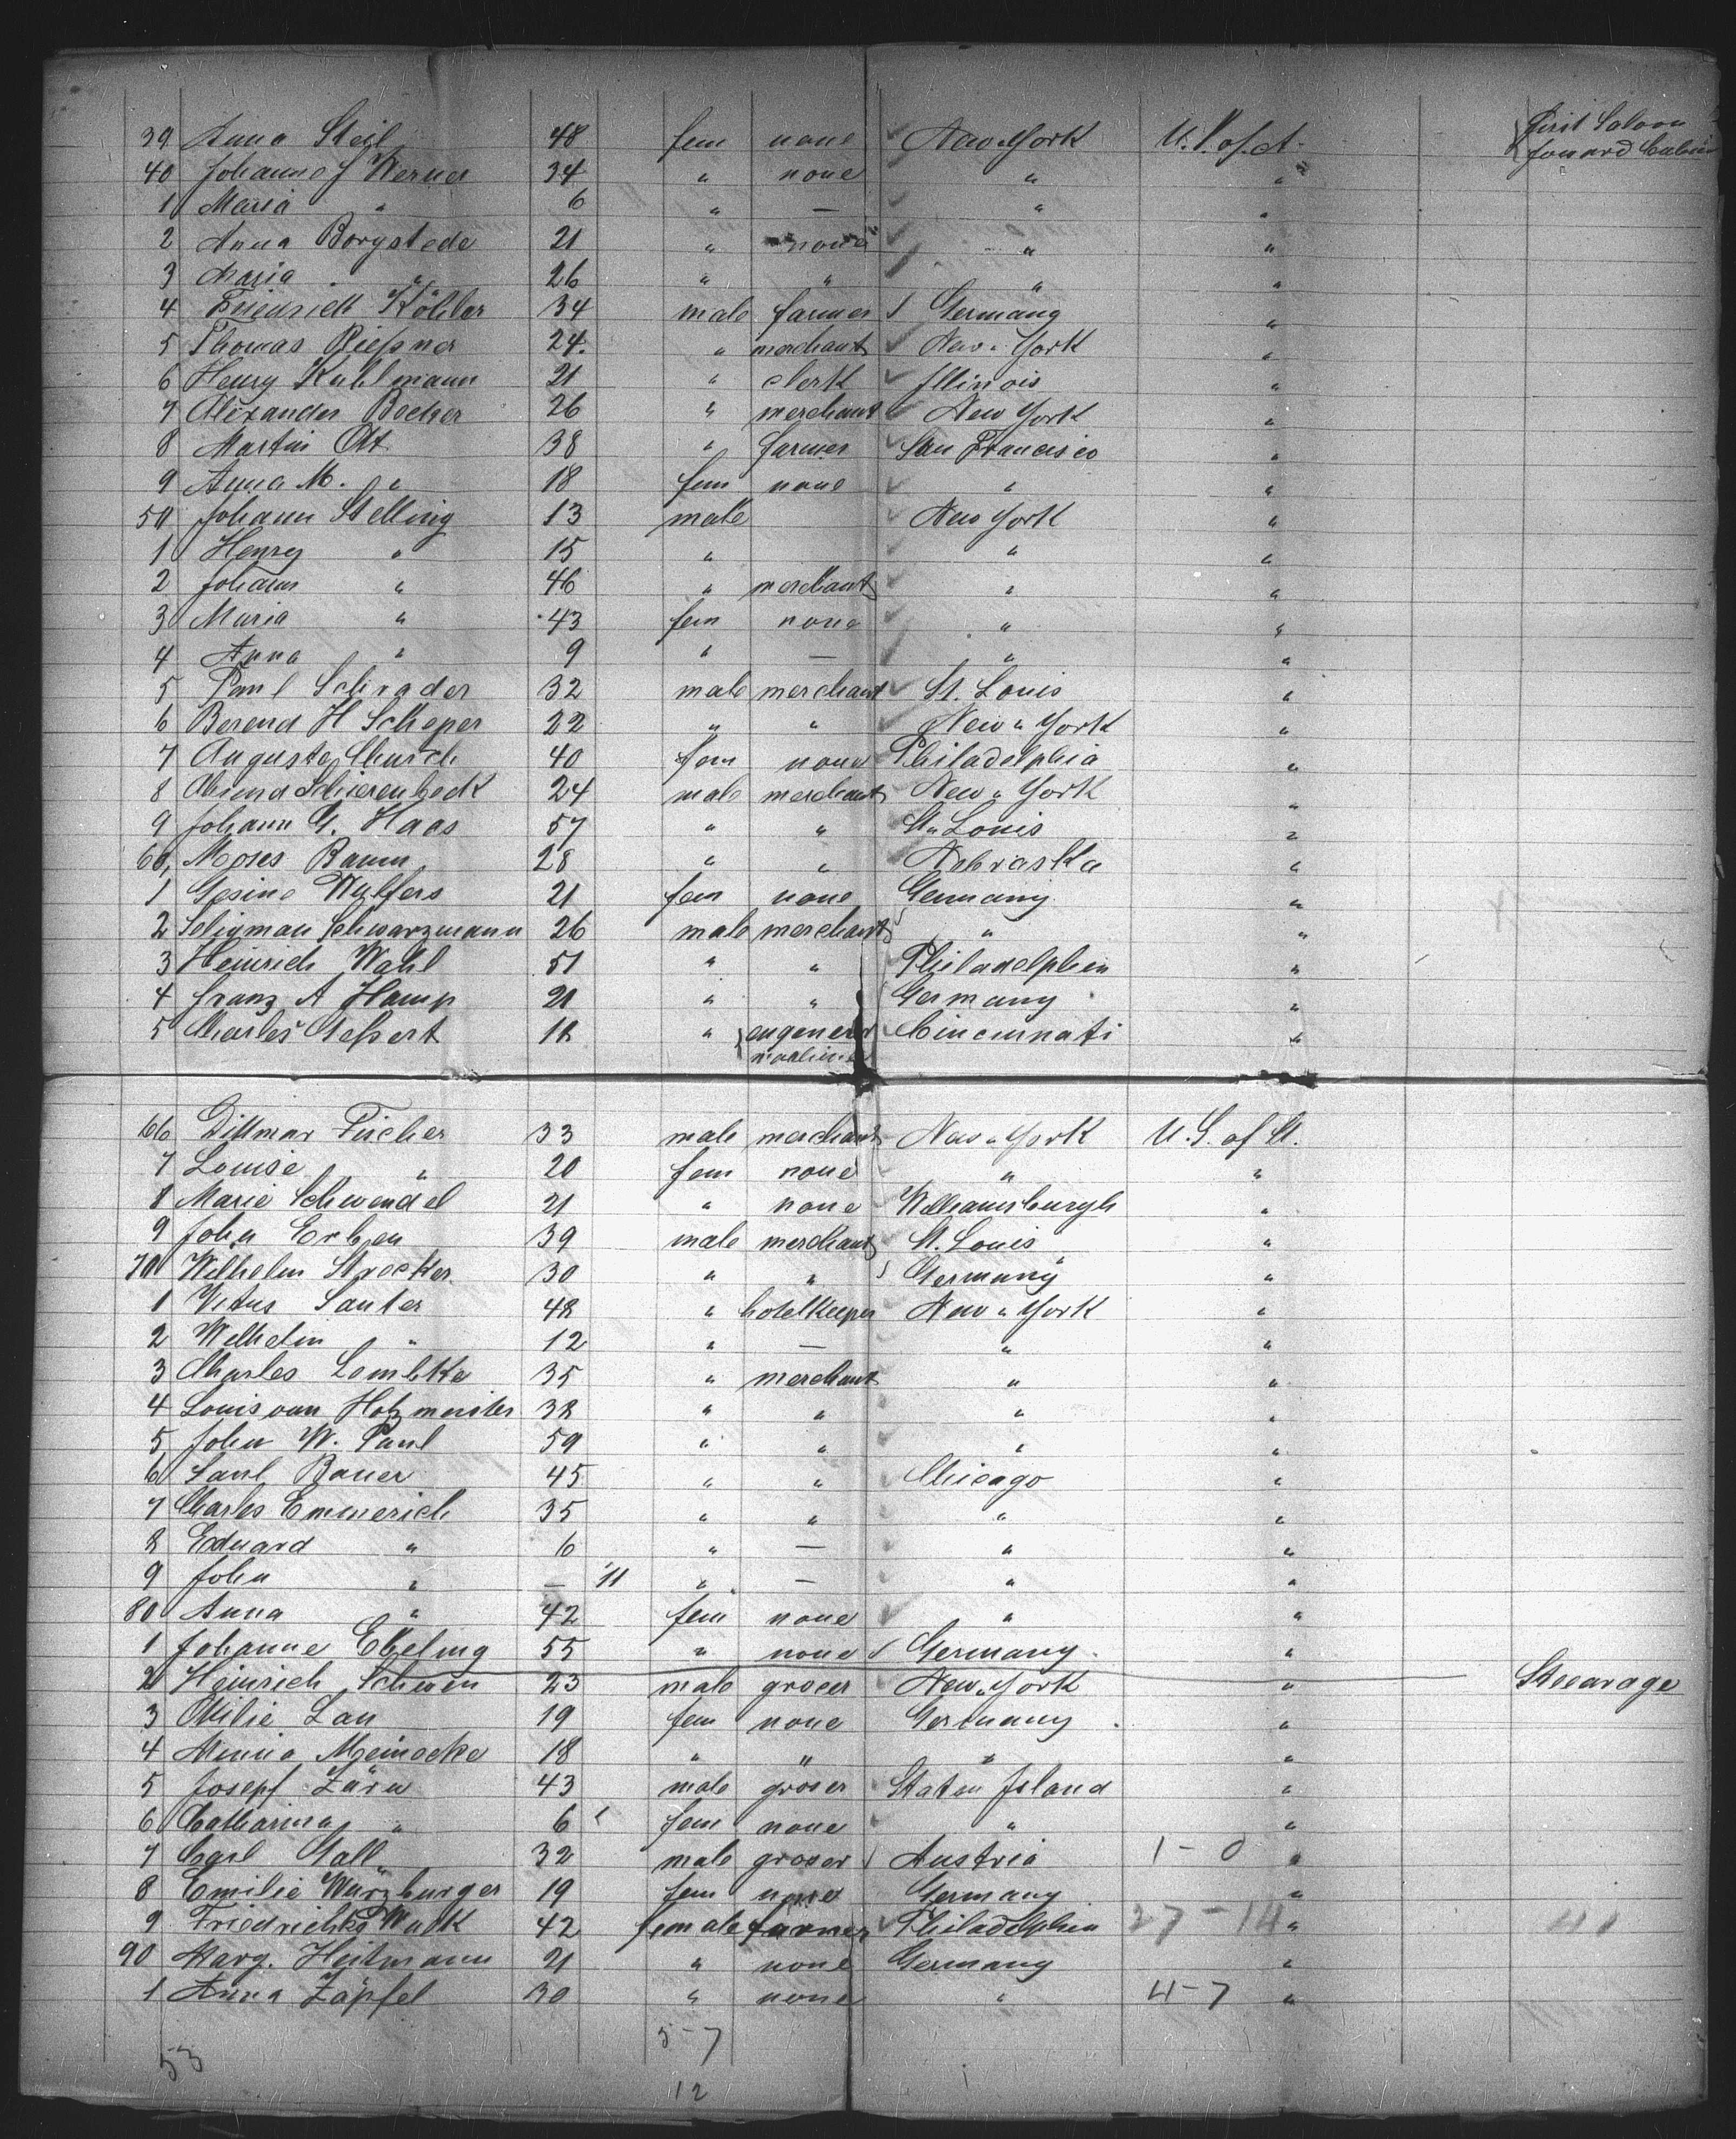 39 Anna Steil 48 fem none New York U.S. of A. first Saloon
forward Cabin
40 Johanne J Werner 34 " none " "
1 Maria " 6 " — " "
2 Anna Borgstede 21 " none " "
3 Maria " 26 " " " "
4 Friedrich Köhler 34 male farmer Germany "
5 Thomas Rießner 24. " merchant New-York "
6 Henry Kuhlmann 21 " clerk Illinois "
7 Alexander Becher 26 " merchant New York "
8 Martin Ott 38 " farmer San Francisco "
9 Anna M. " 18 fem none " "
50 Johann Stelling 13 male New York "
1 Henry " 15 " " "
2 Johann " 46 " merchant " "
3 Maria " 43 fem none " "
4 Anna " 9 " — " "
5 Paul Schrader 32 male merchant St. Louis "
6 Berend H Scheper 22 " " New York "
7 Augusta Church 40 fem none Philadelphia "
8 Schierenbeck 24 male merchant New York "
9 Johann G. Haas 57 " " St. Louis "
60 Moses Baum 28 " " Nebraska "
1 Gesine Wulfers 21 fem none Germany "
2 Seligman Schwarzmann 26 male merchant " "
3 Heinrich Wahl 51 " " Philadelphia "
4 Franz A Hamp 21 " " Germany "
5 Charles Geßert 18 " engeneer Cincinnati "
machine
66 Dittmar Fischer 33 male merchant New York U.S. of A.
7 Louise " 20 fem none " "
8 Marie Schwendel 21 " none Williamsburgh "
9 John Erben 39 male merchant St. Louis "
70 Wilhelm Strecker 30 " " Germany "
1 Vitus Sauter 48 " hotelkeeper New York "
2 Wilhelm " 12 " — " "
3 Charles Lembke 35 " merchant " "
4 Louis van Holzmeister 38 " " " "
5 John W. Paul 59 " " " "
6 Saul Bauer 45 " " Chicago "
7 Charles Emmerich 35 " " " "
8 Eduard " 6 " — " "
9 John " — 11 " — " "
80 Anna " 42 fem none " "
1 Johanne Ebeling 55 " none Germany "
2 Heinrich Schwen 23 male grocer New York " Steearage
3 Ottilie Lau 19 fem none Germany "
4 Minna Meinecke 18 " " " "
5 Josepf Zürn 43 male groser Staten Island "
6 Catharina " 6 fem none " "
7 Carl Gall 32 male groser Austria 1-0 "
8 Emilie Würzburger 19 fem none Germany "
9 Friedricke Wulk 42 female farmer Philadelphia 27-14 " 41
90 Marg. Heitmann 21 " none Germany "
1 Anna Zäpfel 30 " none " 4-7 "
5-7
53
12